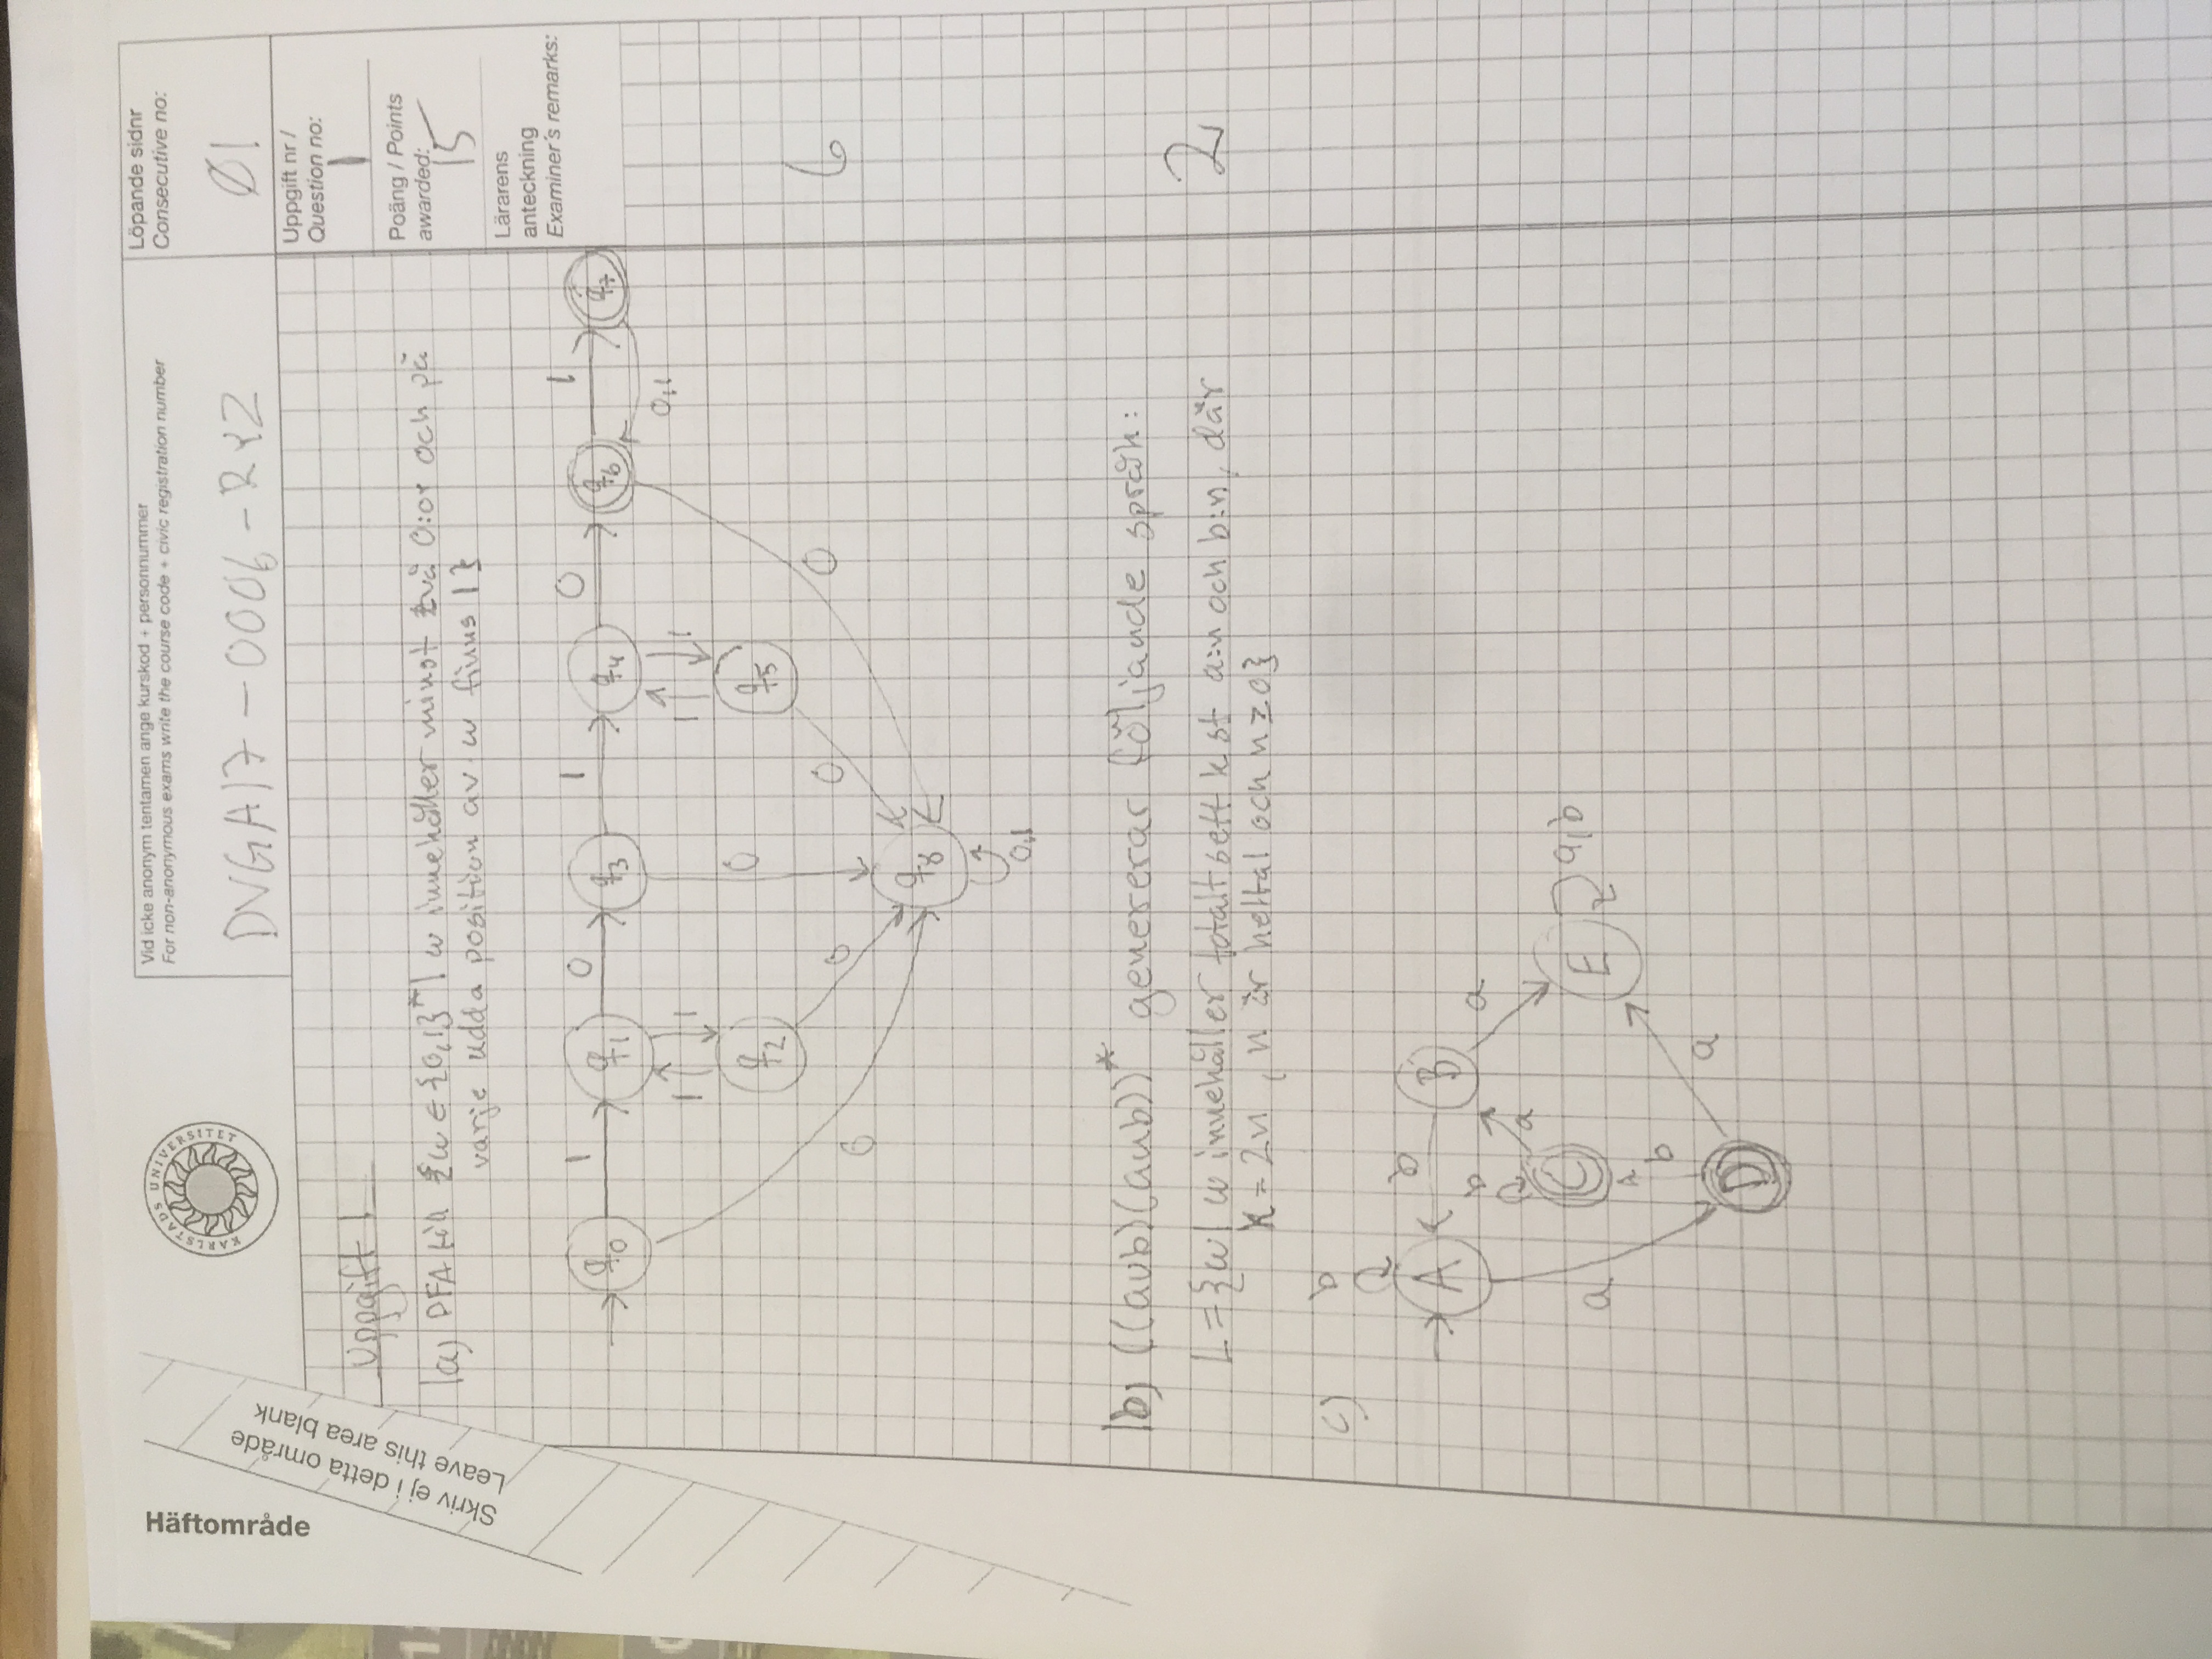 Häftområde
Skriv ej i detta område
Leave this area blank
KARLSTADS UNIVERSITET
Vid icke anonym tentamen ange kurskod + personnummer
For non-anonymous exams write the course code + civic registration number
DVGA17-0006-RYZ
Löpande sidnr
Consecutive no:
01
Uppgift nr /
Question no:
1
Poäng / Points
awarded:
15
Lärarens
anteckning
Examiner's remarks:
Uppgift 1
1a) DFA till {w ∈ {0,1}* | w innehåller minst två 0:or och på
varje udda position av w finns 1}
1 0 1 0 1
q0 q1 q3 q4 q6 q7
0,1
1 1 1 1
0
q2 q5
0 0 0 0
q8
0,1
6
1b) ((a∪b)(a∪b))* genererar följande språk:
L = {w | w innehåller totalt sett k st a:n och b:n, där
k = 2n, n är heltal och n ≥ 0}
2
c)
b
A b B
b a
a
C E a,b
a
b
a
D